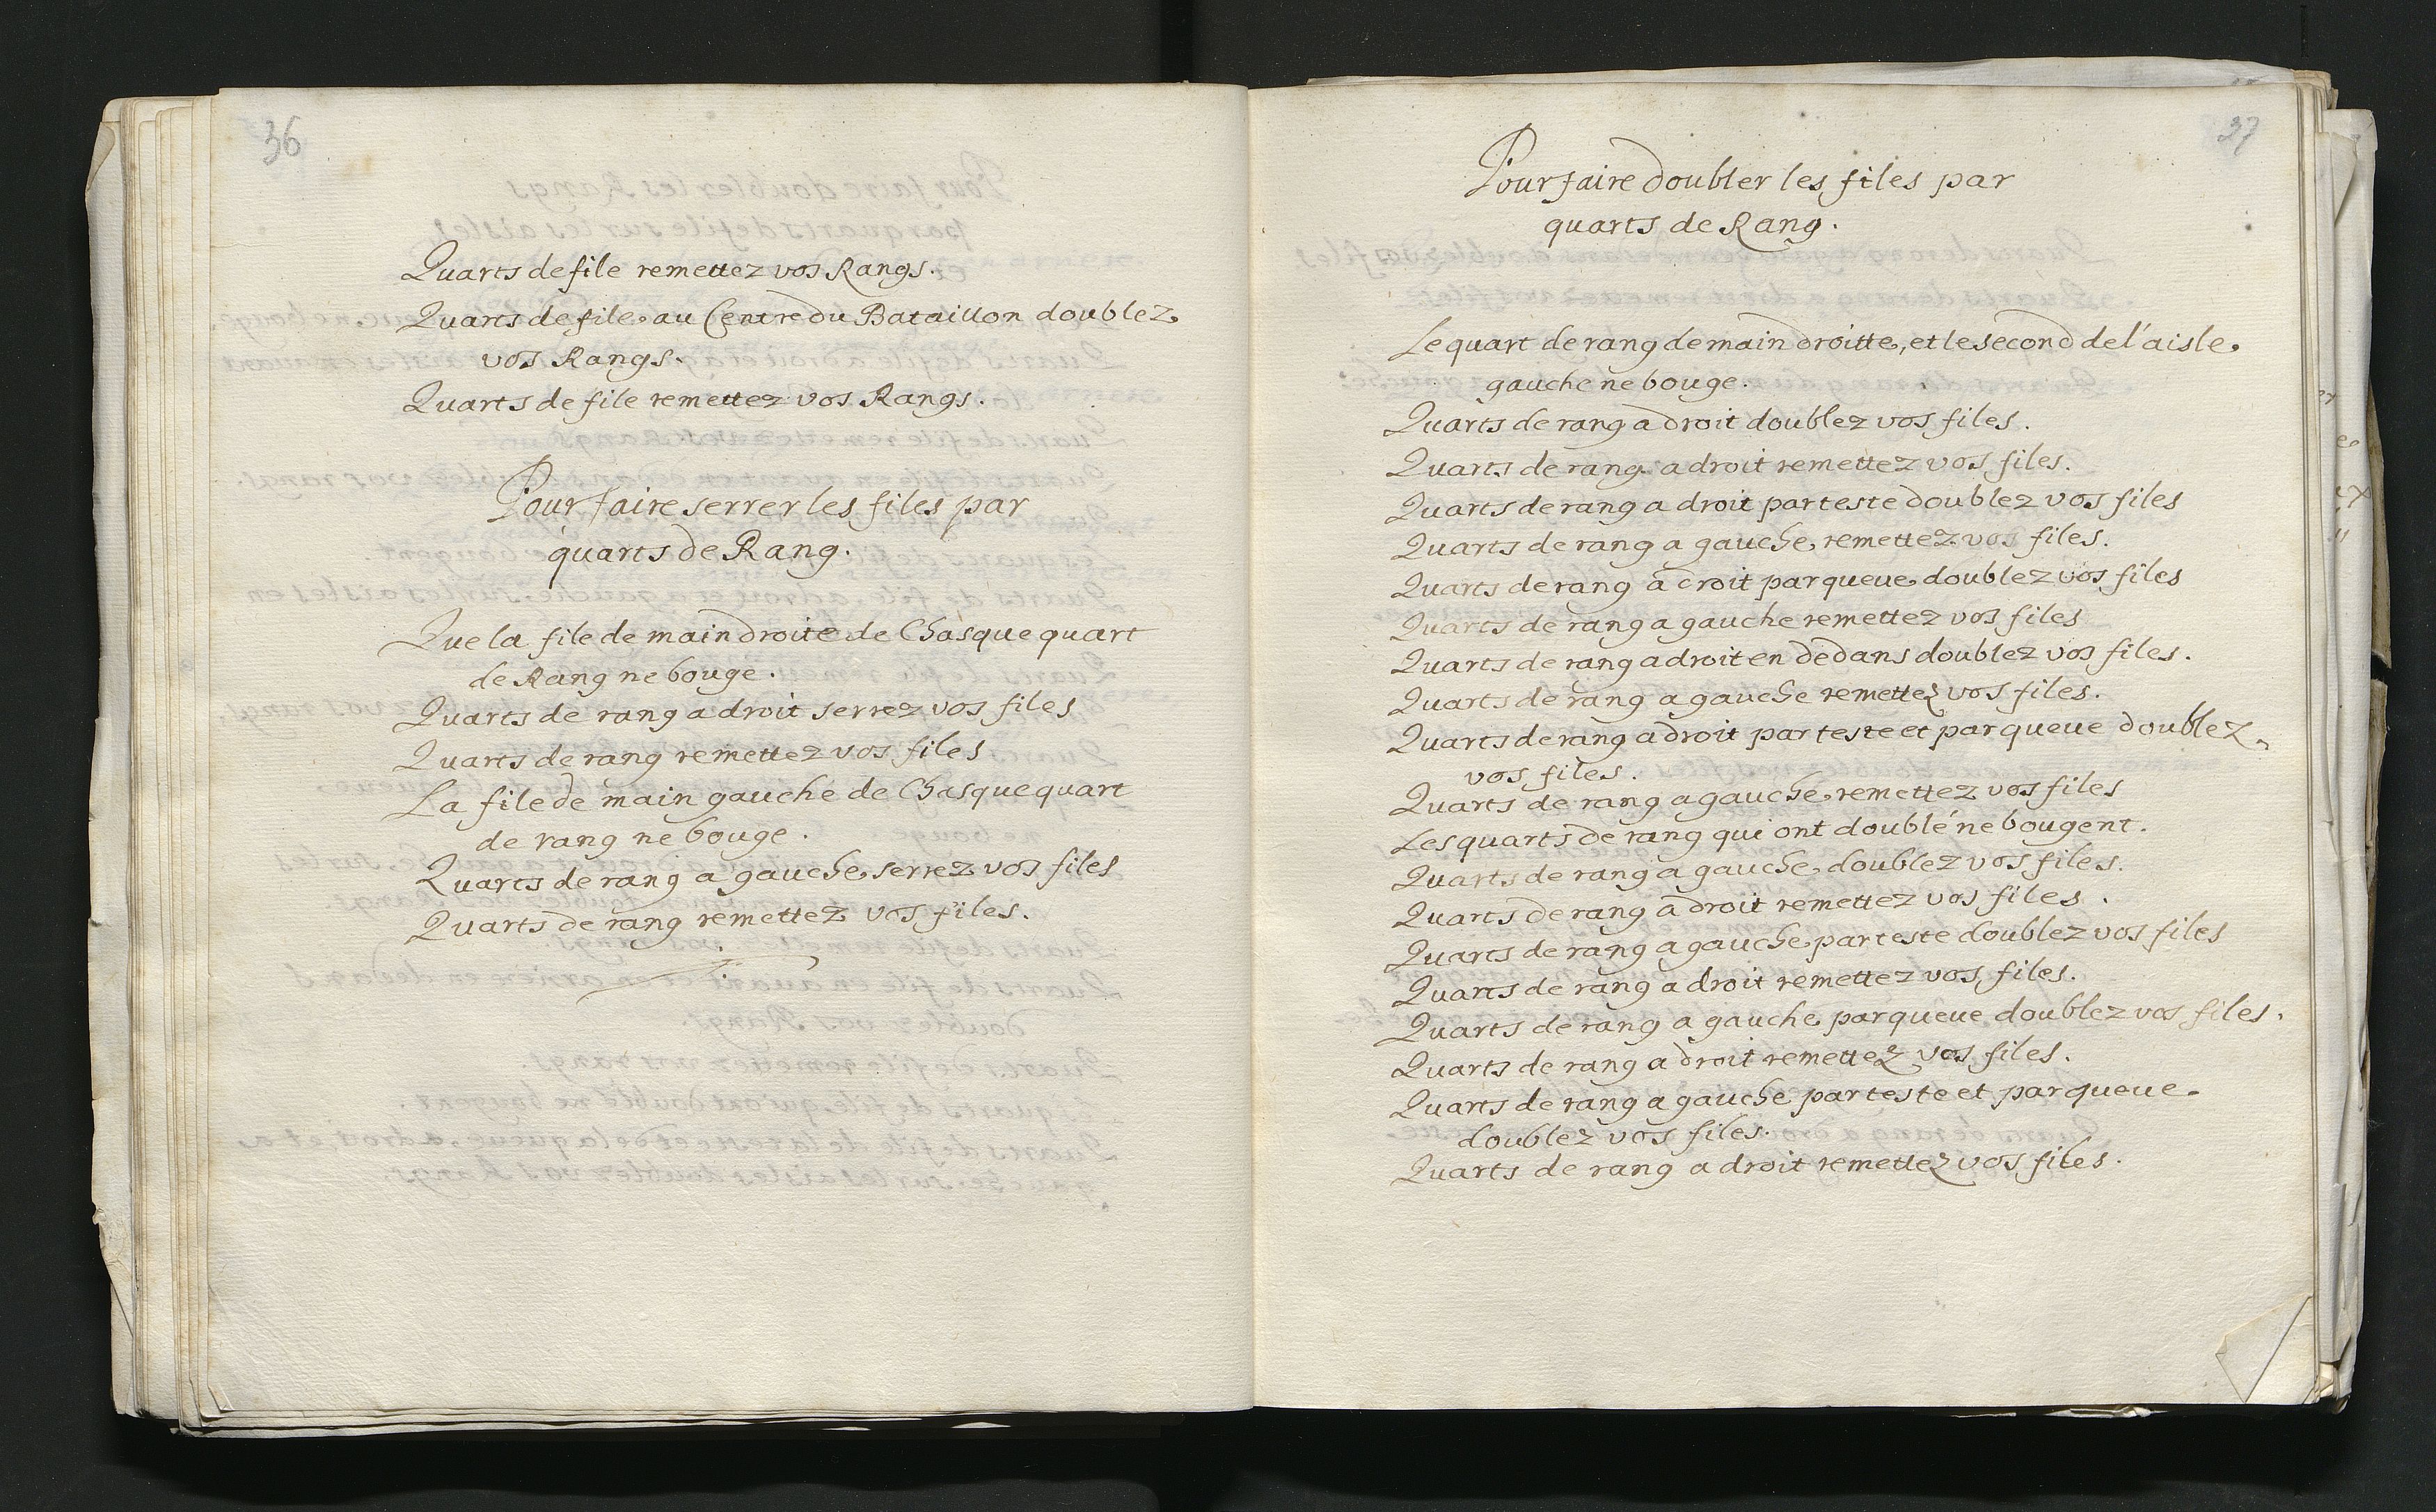 36
Quarts de file remettez vos Rangs.
Quarts de file au Centre du Bataillon doublez
vos Rangs.
Quarts de file remettez vos Rangs.
Pour faire serrer les files par
quarts de Rang.
Que la file de main droite de Chasque quart
de Rang ne bouge.
Quarts de rang a droit serrez vos files
Quarts de rang remettez vos files
La file de main gauche de Chasque quart
de rang ne bouge.
Quarts de rang a gauche serrez vos files
Quarts de rang remettez vos files.
37
Pour faire doubler les files par
quarts de Rang.
Le quart de rang de main droitte, et le second de l'aisle
gauche ne bouge.
Quarts de rang a droit doublez vos files.
Quarts de rang a droit remettez vos files.
Quarts de rang a droit par teste doublez vos files
Quarts de rang a gauche remettez vos files.
Quarts de rang a croit par queue doublez vos files
Quarts de rang a gauche remettez vos files
Quarts de rang a droit en dedans doublez vos files.
Quarts de rang a gauche remettez vos files.
Quarts de rang a droit par teste et par queue doublez
vos files.
Quarts de rang a gauche remettez vos files
Les quarts de rang qui ont doublé ne bougent.
Quarts de rang a gauche doublez vos files.
Quarts de rang a droit remettez vos files.
Quarts de rang a gauche par teste doublez vos files
Quarts de rang a droit remettez vos files.
Quarts de rang a gauche par queue doublez vos files.
Quarts de rang a droit remettez vos files.
Quarts de rang a gauche par teste et par queue
doublez vos files.
Quarts de rang a droit remettez vos files.